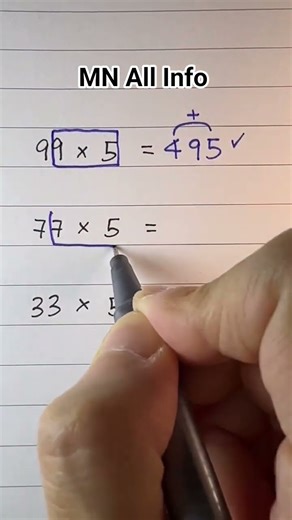 MN All Info
+
99 × 5 = 495 ✓
77 × 5 =
33 × 5